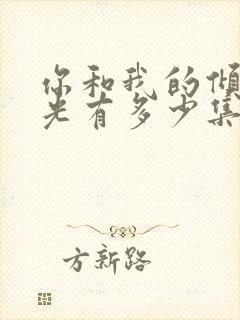 你和我的倾
光有多少集
方新路